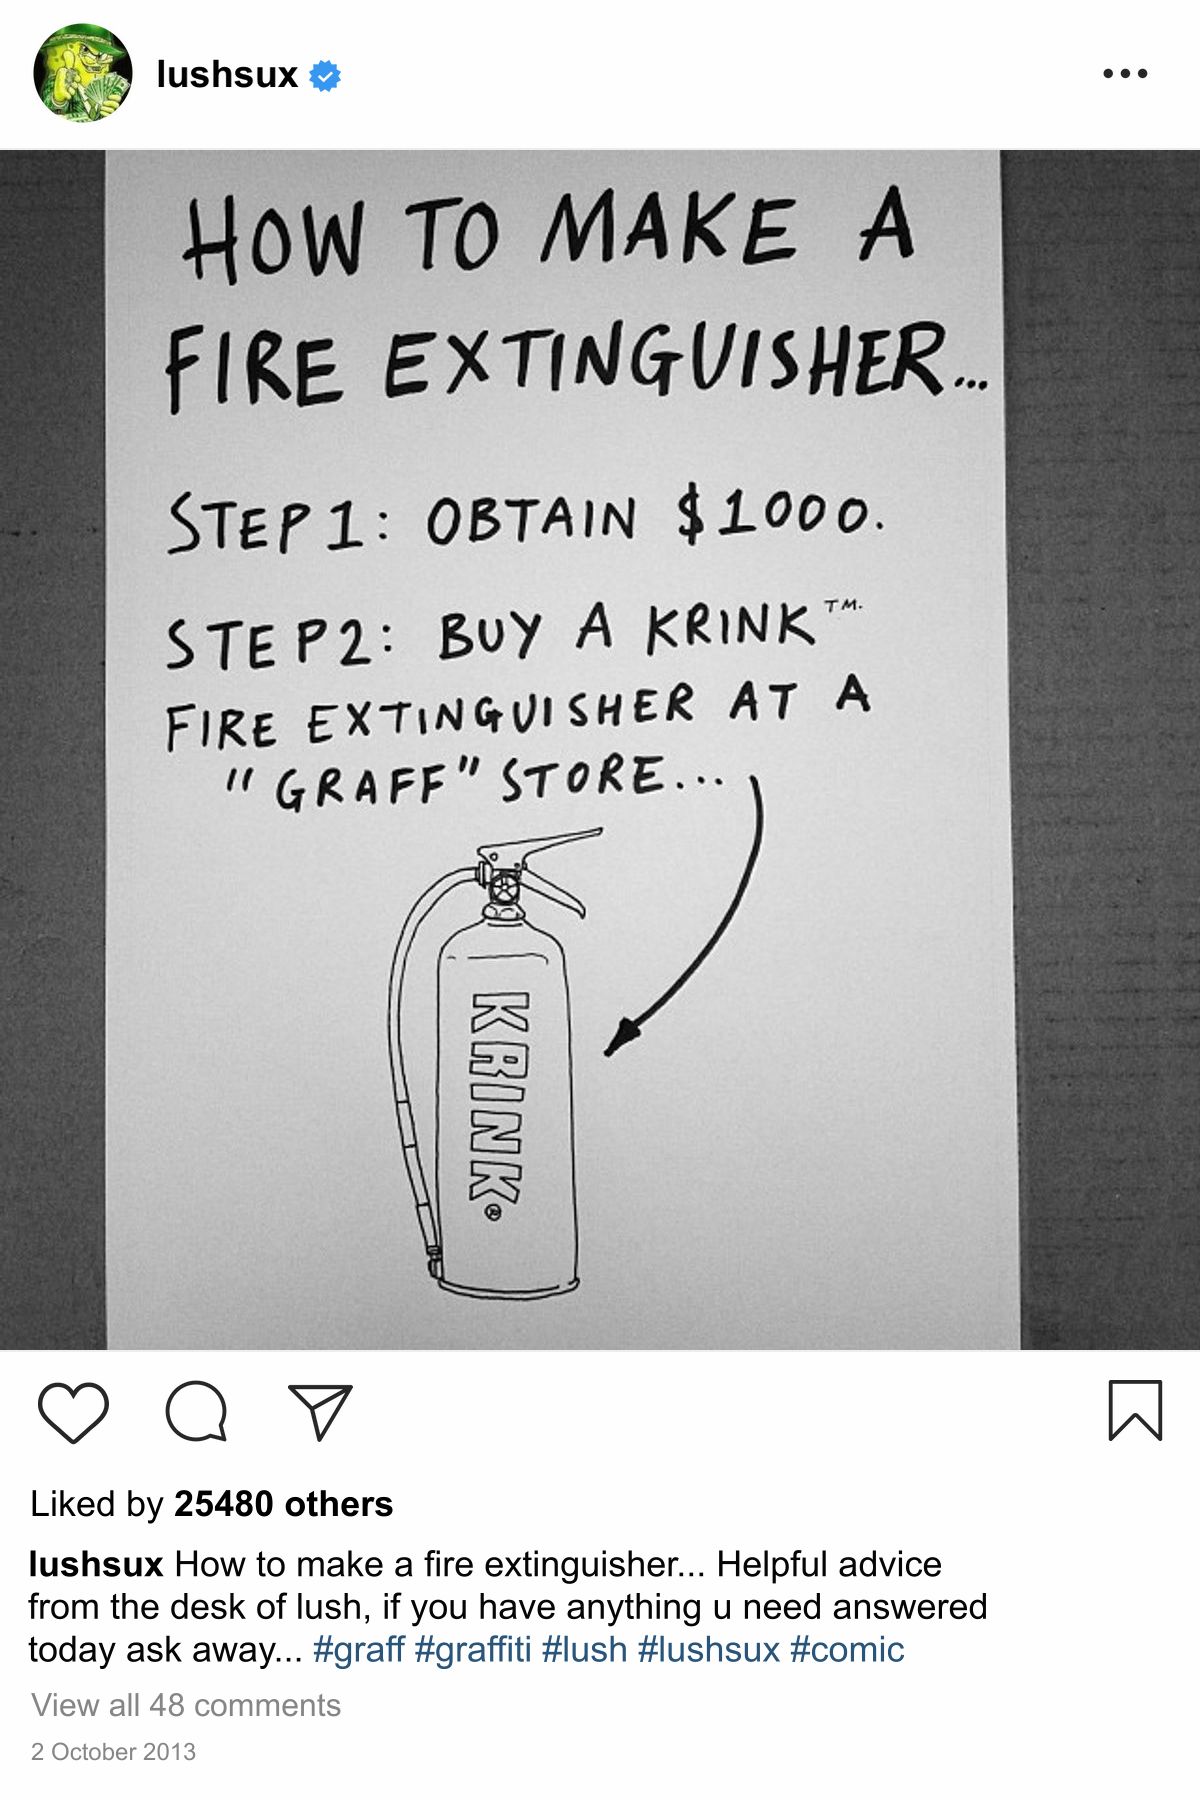 lushsux
HOW TO MAKE A
FIRE EXTINGUISHER...
STEP 1: OBTAIN $1000.
STEP 2: BUY A KRINK™.
FIRE EXTINGUISHER AT A
"GRAFF" STORE...
KRINK®
Liked by 25480 others
lushsux How to make a fire extinguisher... Helpful advice
from the desk of lush, if you have anything u need answered
today ask away... #graff #graffiti #lush #lushsux #comic
View all 48 comments
2 October 2013